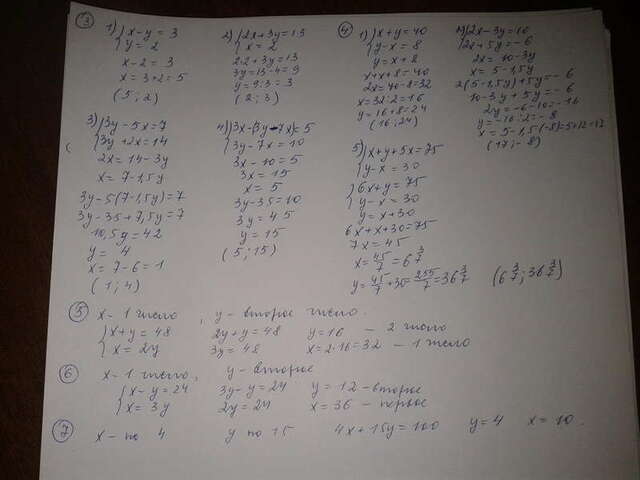 ③
1) {x-y=3
{y=2
x-2=3
x=3+2=5
(5;2)
2) {2x+3y=13
{x=2
2·2+3y=13
3y=13-4=9
y=9:3=3
(2;3)
3) {3y-5x=7
{3y+2x=14
2x=14-3y
x=7-1,5y
3y-5(7-1,5y)=7
3y-35+7,5y=7
10,5y=42
y=4
x=7-6=1
(1;4)
4) {3x-(3y-7x)=5
{3y-7x=10
3x-10=5
3x=15
x=5
3y-35=10
3y=45
y=15
(5;15)
④
1) {x+y=40
{y-x=8
y=x+8
x+x+8=40
2x=40-8=32
x=32:2=16
y=16+8=24
(16;24)
{2x-3y=10
{2x+5y=-6
2x=10-3y
x=5-1,5y
2(5-1,5y)+5y=-6
10-3y+5y=-6
2y=-6-10=-16
y=-16:2=-8
x=5-1,5(-8)=5+12=17
(17;-8)
5) {x+y+5x=75
{y-x=30
{6x+y=75
{y-x=30
y=x+30
6x+x+30=75
7x=45
x=45/7=6 3/7
y=45/7+30=255/7=36 3/7 (6 3/7; 36 3/7)
⑤ x-1 число, y-второе число.
{x+y=48 2y+y=48 y=16 - 2 число
{x=2y 3y=48 x=2·16=32 - 1 число
⑥ x-1 число, y-второе
{x-y=24 3y-y=24 y=12-второе
{x=3y 2y=24 x=36-первое
⑦ x-по 4 y по 15 4x+15y=100 y=4 x=10.